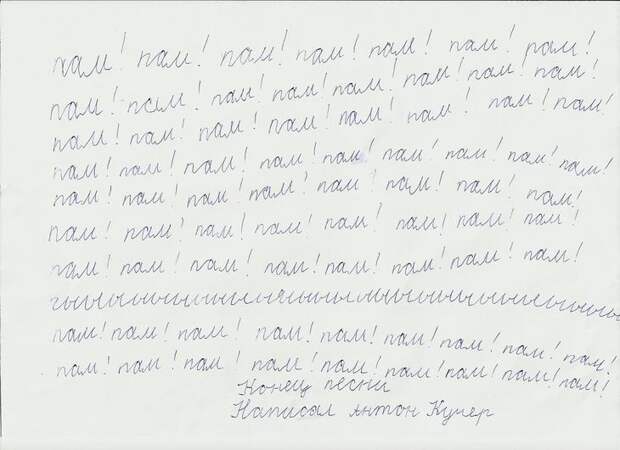 пам! пам! пам! пам! пам! пам! пам!
пам! пам! пам! пам! пам! пам! пам! пам!
пам! пам! пам! пам! пам! пам! пам! пам!
пам! пам! пам! пам! пам! пам! пам! пам! пам!
пам! пам! пам! пам! пам! пам! пам! пам!
пам! пам! пам! пам! пам! пам! пам! пам!
пам! пам! пам! пам! пам! пам! пам! пам!
пам! пам! пам! пам! пам! пам! пам! пам! пам!
пам! пам! пам! пам! пам! пам! пам! пам! пам!
Конец песни
Написал Антон Кучер